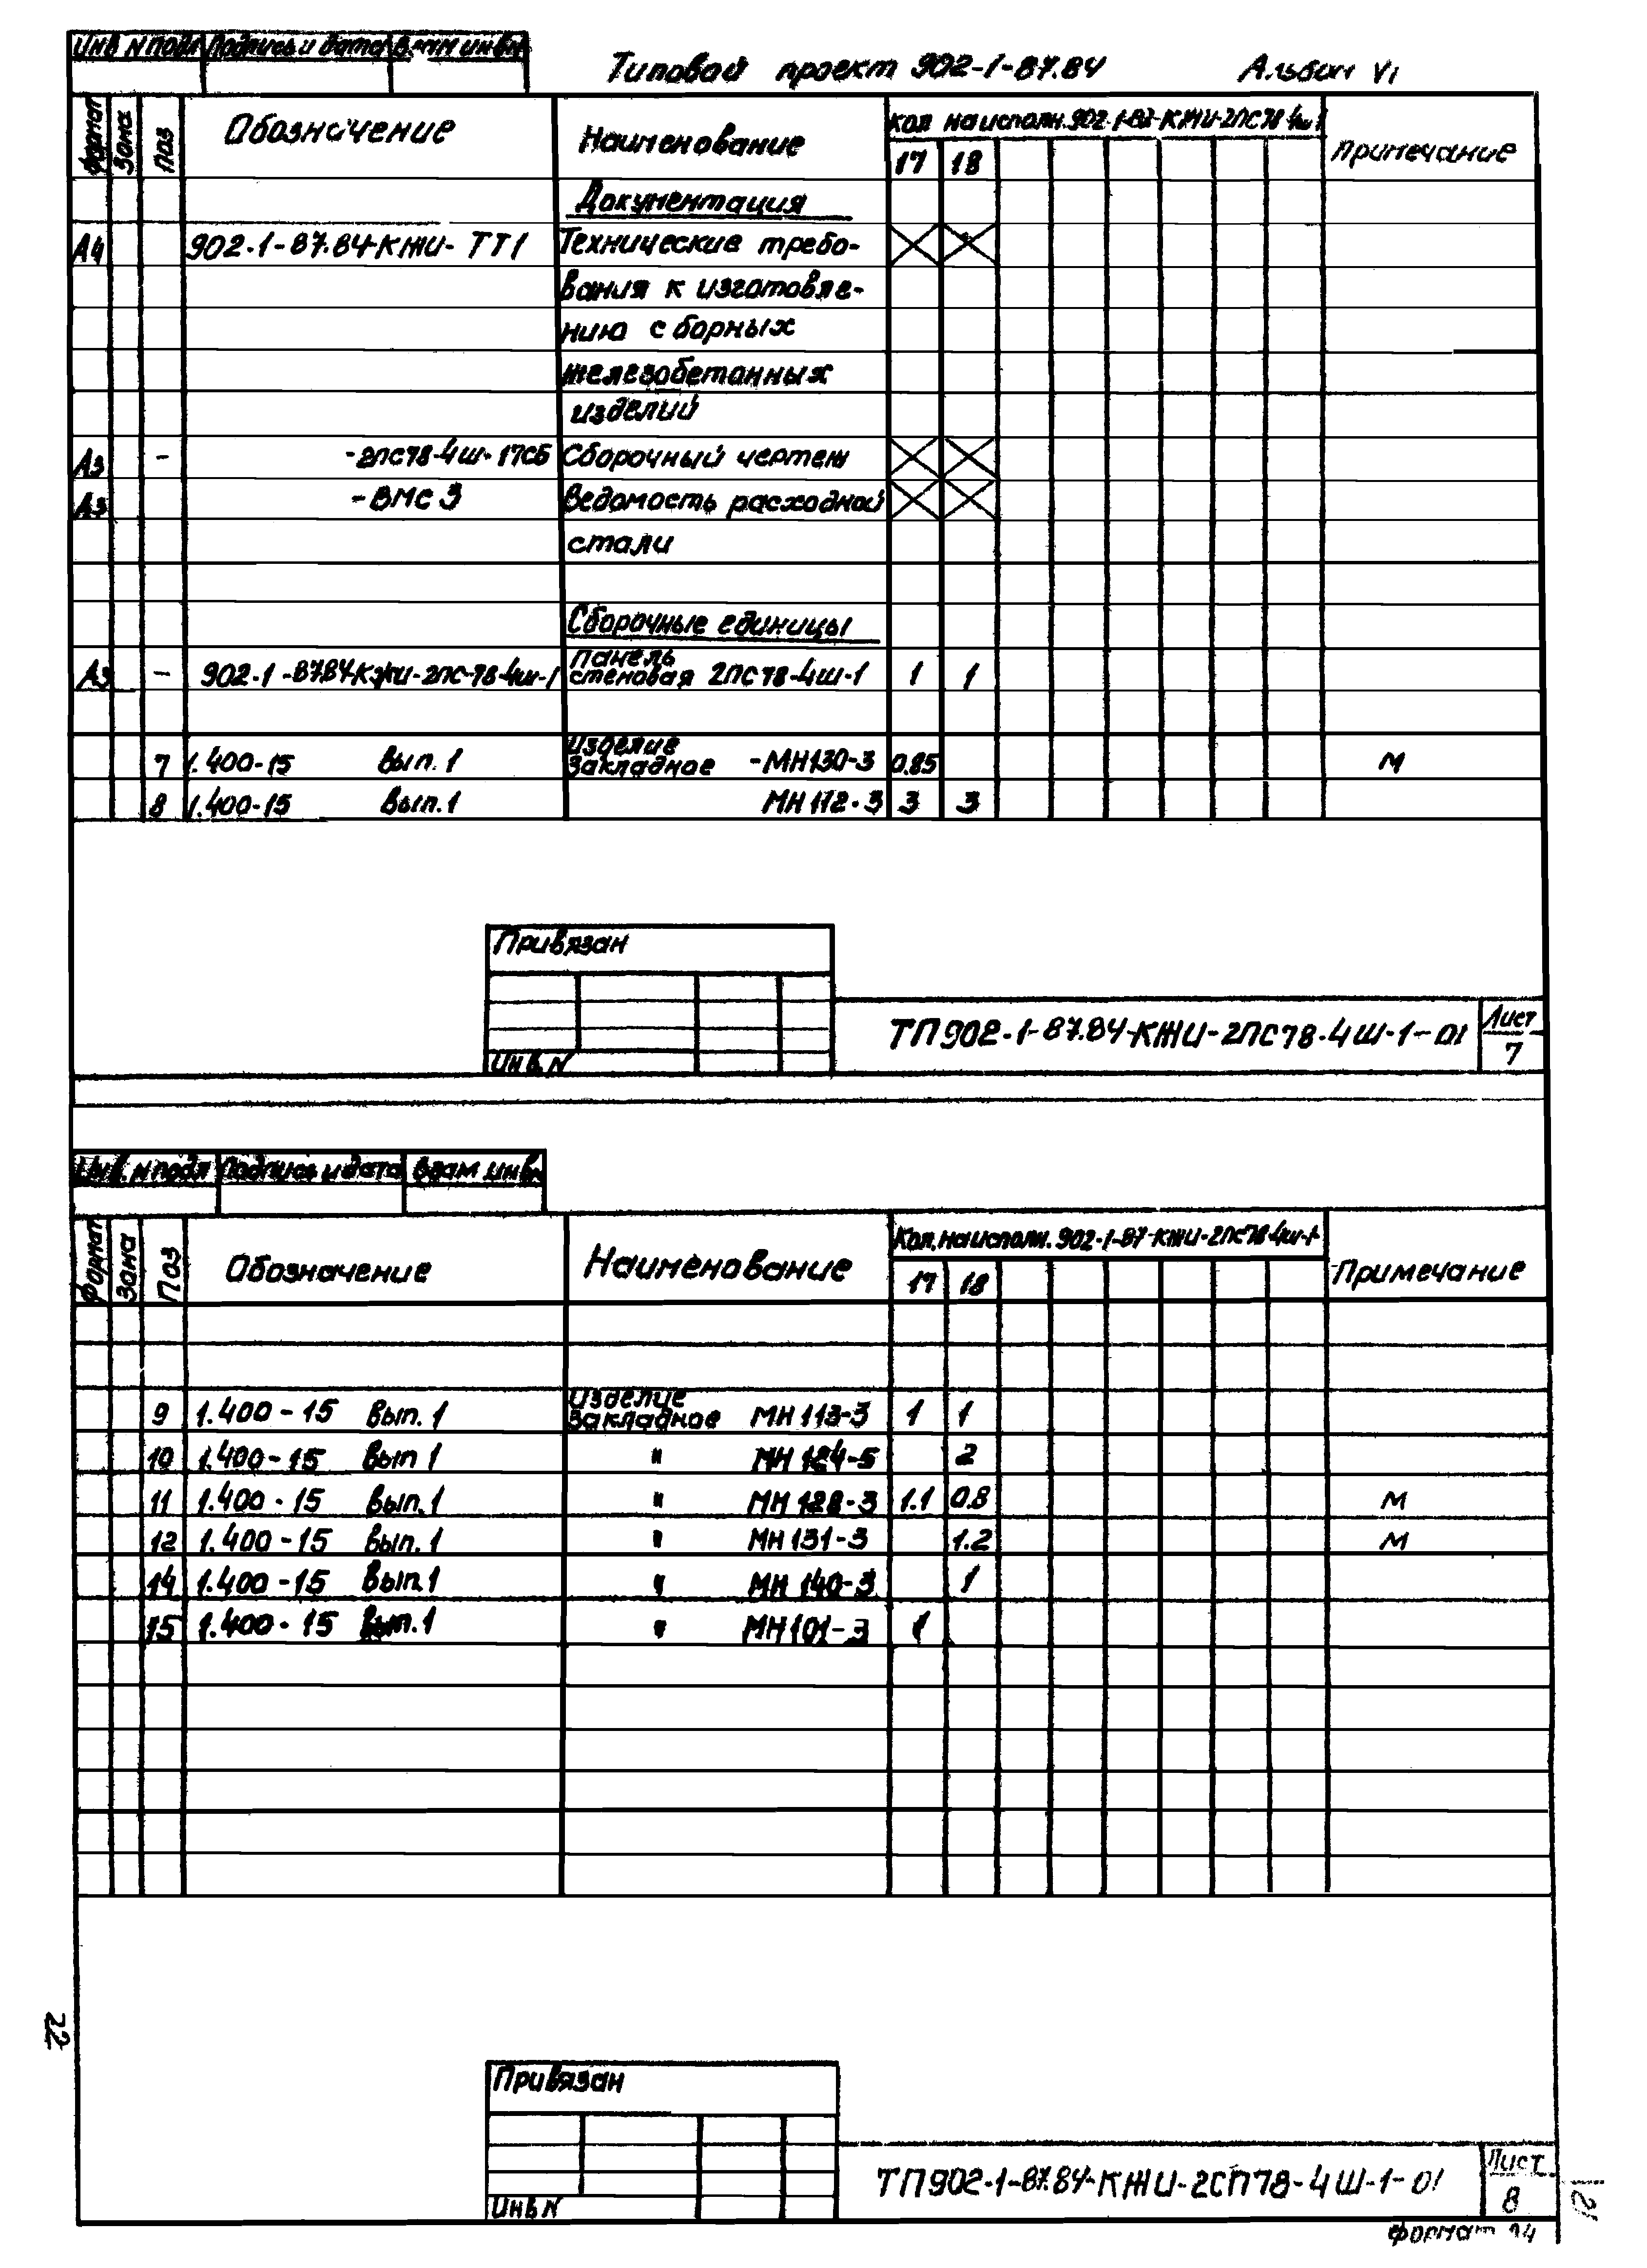 Инв N подл Подпись и дата Взам инв N
Типовой проект 902-1-87.84 Альбом VI
Формат Зона Поз Обозначение Наименование Кол на исполн. 902-1-87-КЖИ-2ПС78-4ш-1 Примечание
17 18
Документация
А4 902.1-87.84-КЖИ-ТТ1 Технические требо-
вания к изготовле-
нию сборных
железобетонных
изделий
А3 - -2ПС78-4Ш-17СБ Сборочный чертеж
А3 -ВМС 3 Ведомость расходной
стали
Сборочные единицы
А3 - 902-1-87.84-КЖИ-2ПС-78-4ш-1 Панель
стеновая 2ПС78-4Ш-1 1 1
7 1.400-15 Вып.1 Изделие
закладное -МН130-3 0.85 М
8 1.400-15 Вып.1 МН112-3 3 3
Привязан
Инв.N
ТП902-1-87.84-КЖИ-2ПС78-4Ш-1-01 Лист
7
Инв. N подл Подпись и дата Взам инв.
Формат Зона Поз Обозначение Наименование Кол. на исполн. 902-1-87-КЖИ-2ПС78-4ш-1- Примечание
17 18
9 1.400-15 Вып.1 Изделие
закладное МН 113-3 1 1
10 1.400-15 Вып 1 " МН 124-5 2
11 1.400-15 Вып.1 " МН 128-3 1.1 0.8 М
12 1.400-15 Вып.1 " МН 131-3 1.2 М
14 1.400-15 Вып.1 " МН 140-3 1
15 1.400-15 Вып.1 " МН101-3 1
22
Привязан
Инв N
ТП902-1-87.84-КЖИ-2СП78-4Ш-1-01 Лист
8
21
формат А4